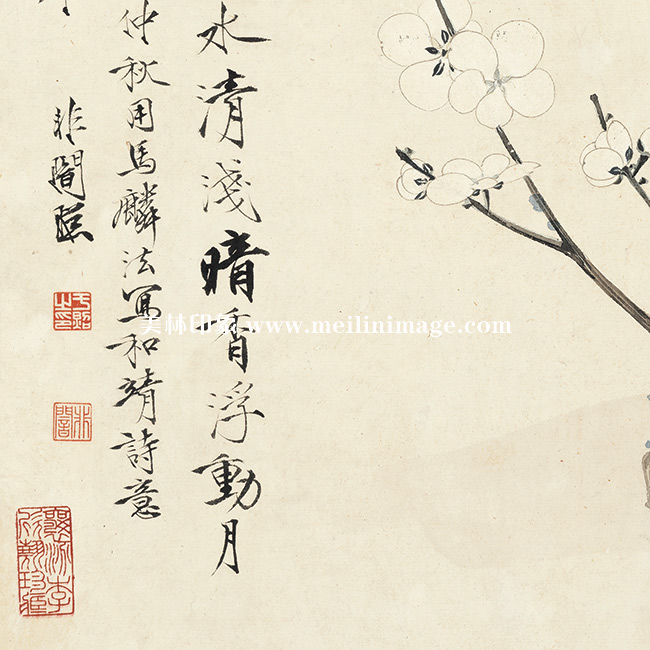 水清淺暗香浮動月
仲秋用馬麟法寫和靖詩意
非闇照
于照之印
非闇
美林印象 www.meilinimage.com